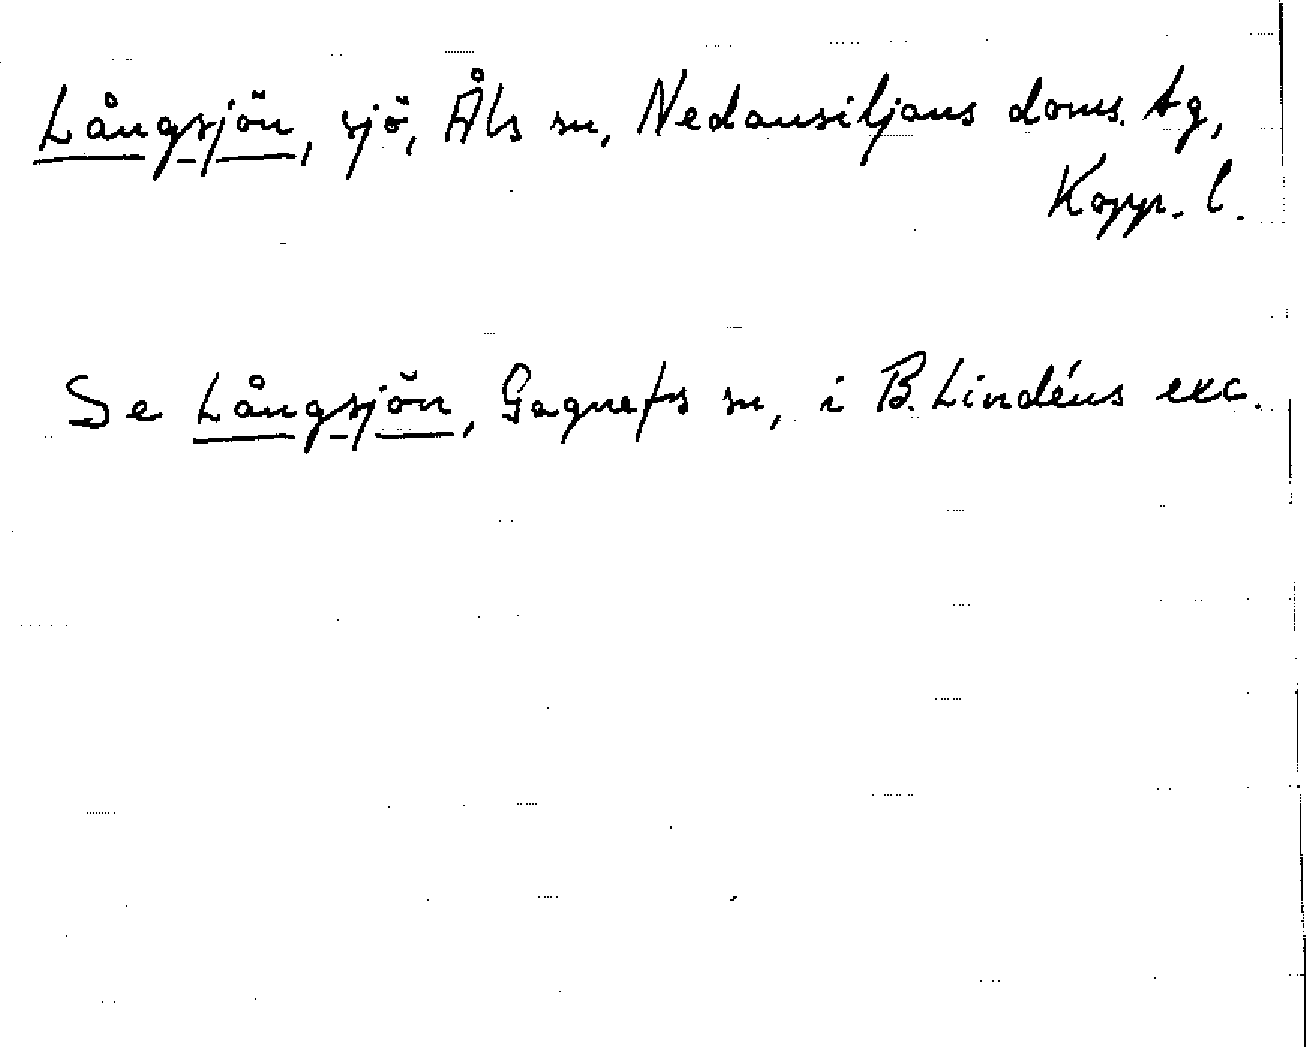 Långsjön, sjö, Åls sn, Nedansiljans doms. tg,
Kopp. l.
Se Långsjön, Gagnefs sn, i B. Lindéns exc.